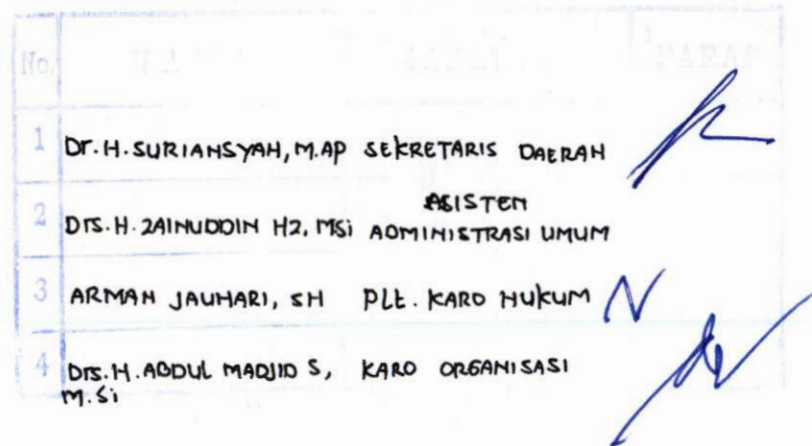 No. NAMA JABATAN PARAF
1 Dr. H. SURIANSYAH, M.AP SEKRETARIS DAERAH
2 Drs. H. ZAINUDDIN HZ, MSi ASISTEN
ADMINISTRASI UMUM
3 ARMAN JAUHARI, SH PLt. KARO HUKUM
4 Drs. H. ABDUL MADJID S, KARO ORGANISASI
M.Si